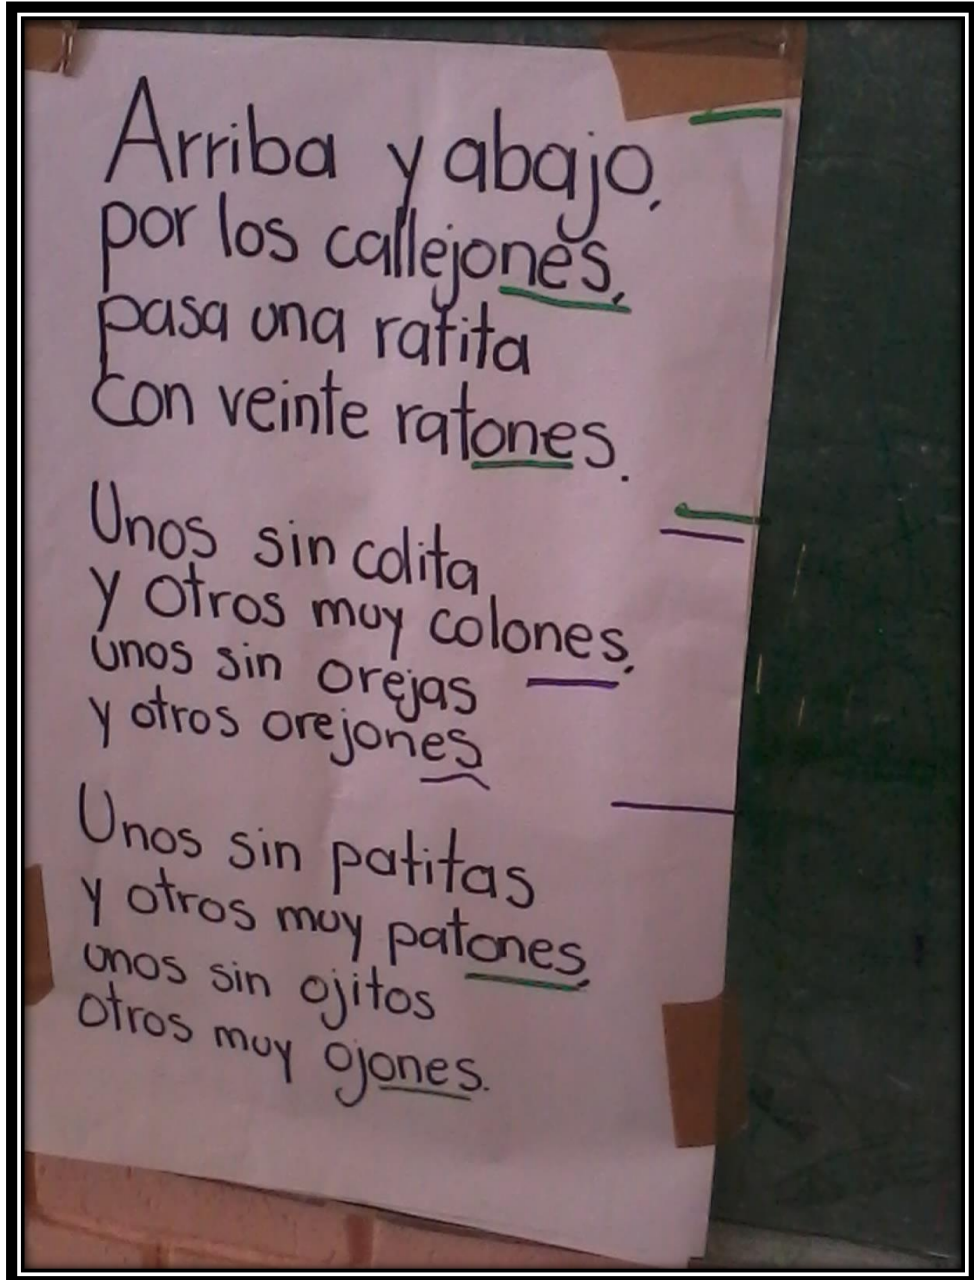 Arriba y abajo,
por los callejones,
pasa una ratita
con veinte ratones.
Unos sin colita
y otros muy colones,
unos sin orejas
y otros orejones
Unos sin patitas
y otros muy patones,
unos sin ojitos
otros muy ojones.